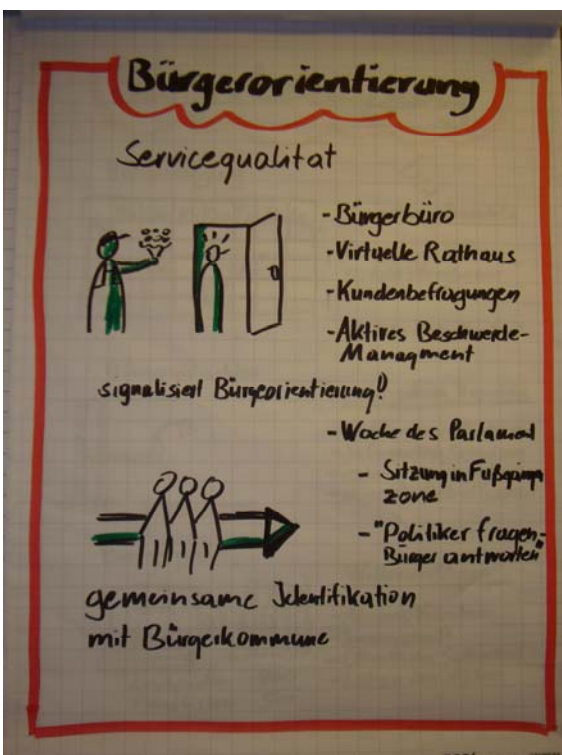 Bürgerorientierung
Servicequalitat
- Bürgerbüro
- Virtuelle Rathaus
- Kundenbefragungen
- Aktives Beschwerde-
Managment
signalisiert Bürgeorientierung!
- Woche des Parlament
- Sitzung in Fußgänger
zone
- "Politiker fragen-
Bürger antworten"
gemeinsame Identifikation
mit Bürgerkommune